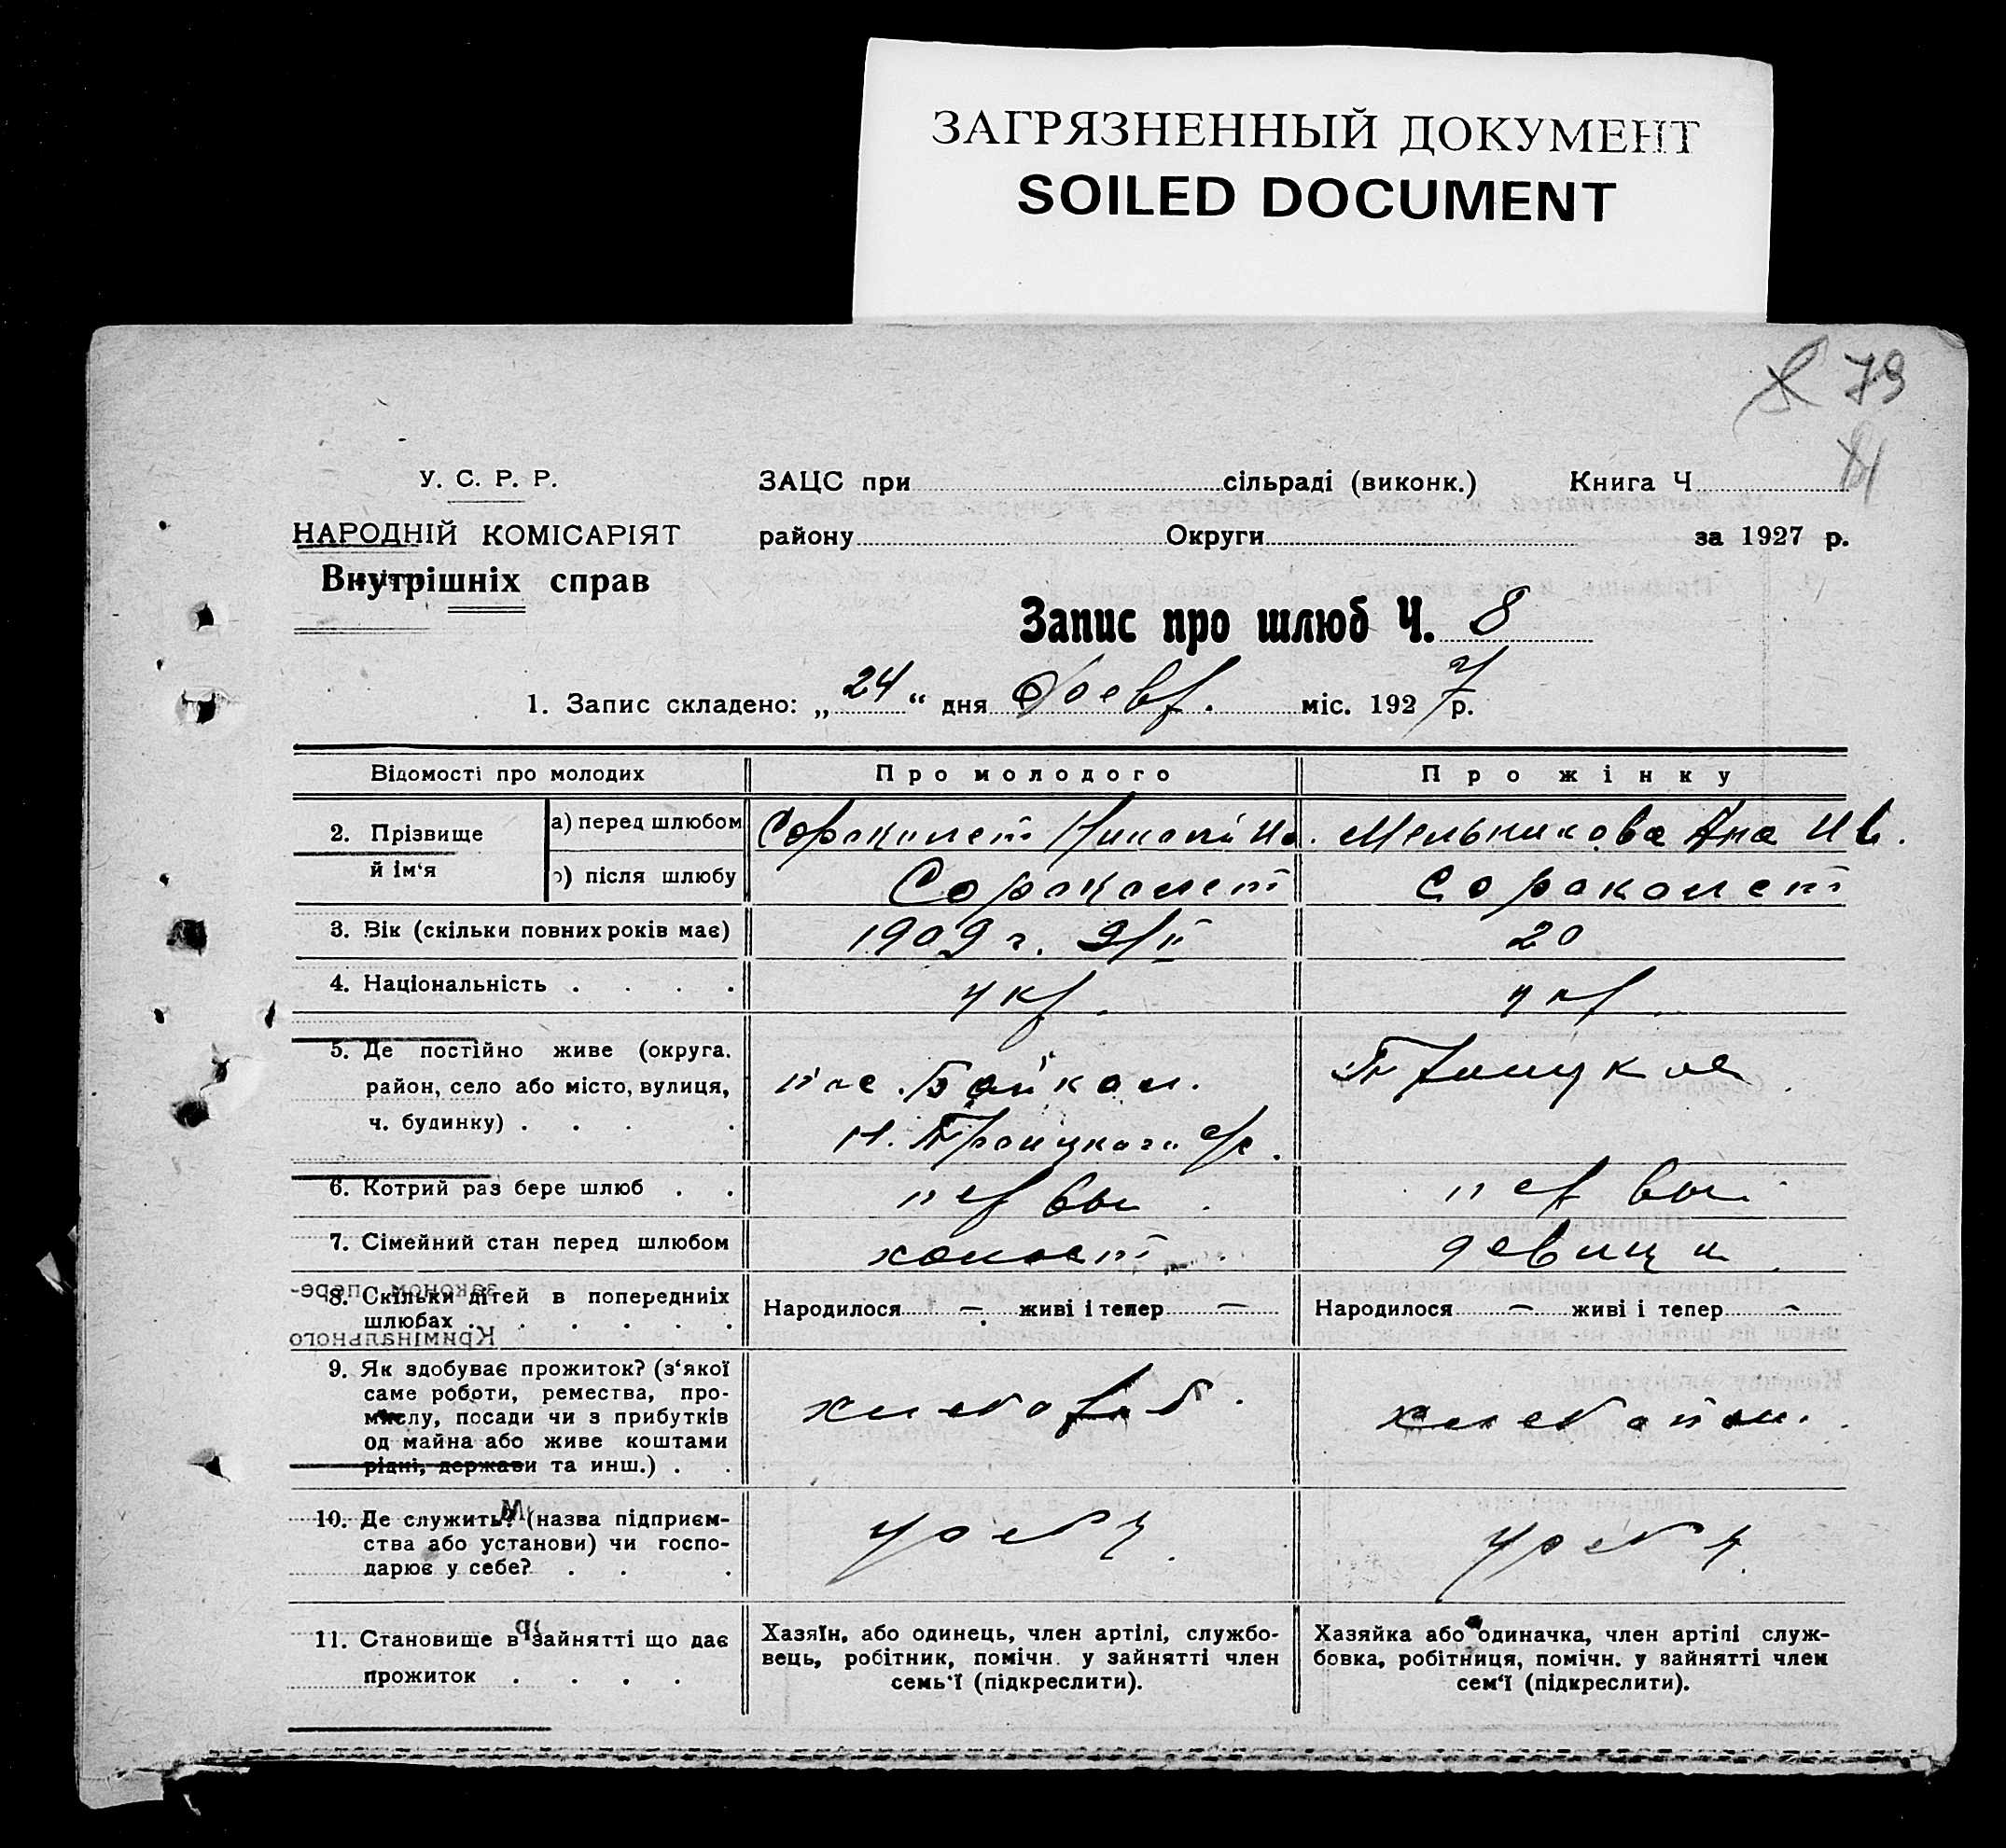 ЗАГРЯЗНЕННЫЙ ДОКУМЕНТ
SOILED DOCUMENT
79
У. С. Р. Р.
ЗАЦС при сільраді (виконк.) Книга Ч
НАРОДНІЙ КОМІСАРІЯТ
району Округи за 1927 р.
Внутрішніх справ
Запис про шлюб Ч. 8
1. Запис складено: „24“ дня Февр. міс. 1927 р.
Відомості про молодих
Про молодого
Про жінку
2. Прізвище й ім‘я
а) перед шлюбом
Сораколет Ив.
Мельникова Ана Ив.
б) після шлюбу
Сораколет
Сораколет
3. Вік (скільки повних років має)
1909 г. 9/II
20
4. Національність . . . .
укр.
укр.
5. Де постійно живе (округа.
район, село або місто, вулиця,
ч. будинку) . . . .
пос. Байкал.
Н. Троицкого с/с.
Троицкое
6. Котрий раз бере шлюб . .
первый
первый
7. Сімейний стан перед шлюбом
холост
девица
8. Скільки дітей в попередніх
шлюбах . . . . . .
Народилося — живі і тепер —
Народилося — живі і тепер —
9. Як здобуває прожиток? (з‘якої
саме роботи, ремества, про-
мислу, посади чи з прибутків
од майна або живе коштами
рідні, держави та инш.) . .
хлебороб.
10. Де служить? (назва підприєм-
ства або установи) чи госпо-
дарює у себе? . . .
у себя
у себя
11. Становище в зайнятті що дає
прожиток . . . .
Хазяїн, або одинець, член артілі, службо-
вець, робітник, помічн. у зайнятті член
семь‘ї (підкреслити).
Хазяйка або одиначка, член артілі служ-
бовка, робітниця, помічн. у зайнятті член
сем‘ї (підкреслити).